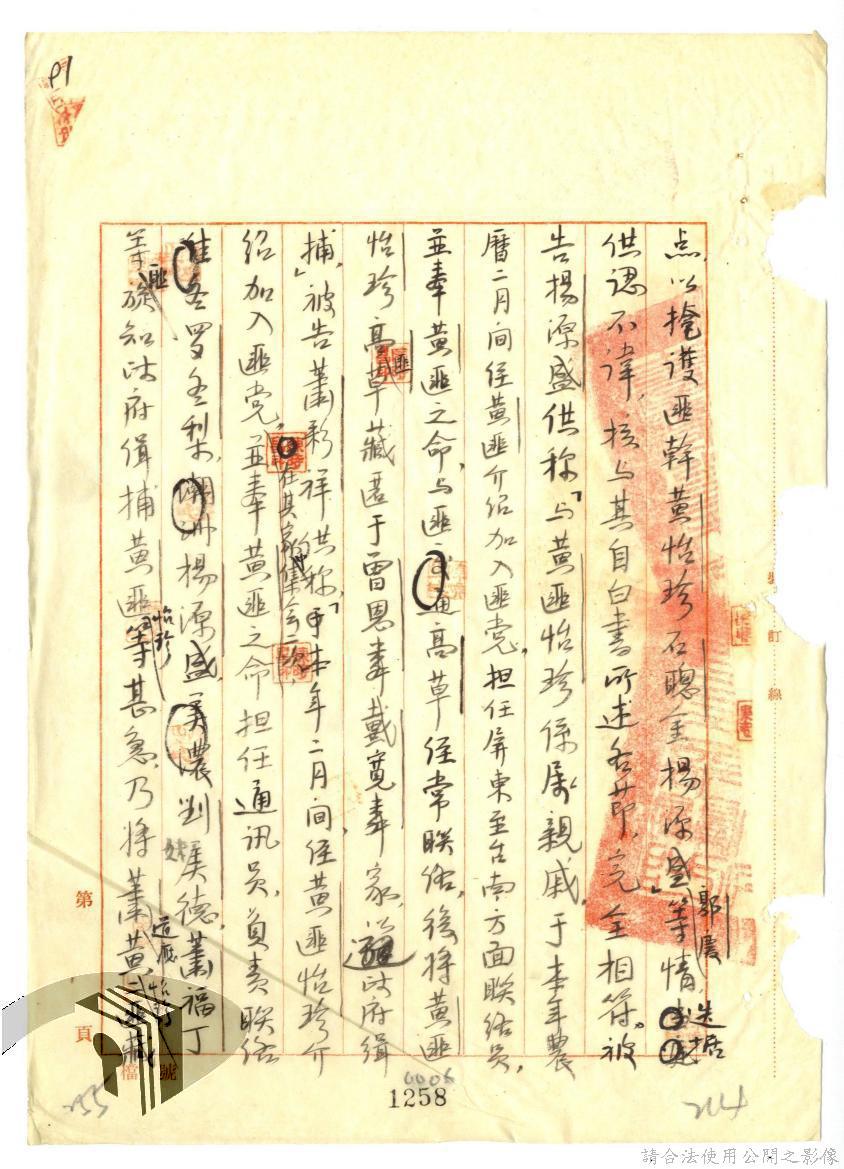 点,以掩護匪幹黃怡珍石聰金楊源盛」等情,
郭慶
迭据
供認不諱,核与其自白書所述各節,完全相符。被
告楊源盛供称「与黃匪怡珍係屬親戚,于本年農
曆二月間經黃匪介紹加入匪党,担任屏東至台南方面联絡員,
並奉黃匪之命,与匪通高草經常联絡,後將黃匪
怡珍高草藏匿于曾恩 戴寬 家,以避政府緝
匪
捕,」被告蕭彩祥供称,「于本年二月間,經黃匪怡珍介
在其家集会二次
紹加入匪党,並奉黃匪之命担任通訊員,負責联絡
佳冬罗冬梨,潮洲楊源盛,美濃刘 德,蕭福丁
等旋知政府緝捕黃匪等甚急,乃將蕭黃 匪藏
匪
怡珍
道應怡珍
裝訂線
第 頁
檔號
P1
0006
1258
255
214
請合法使用公開之影像